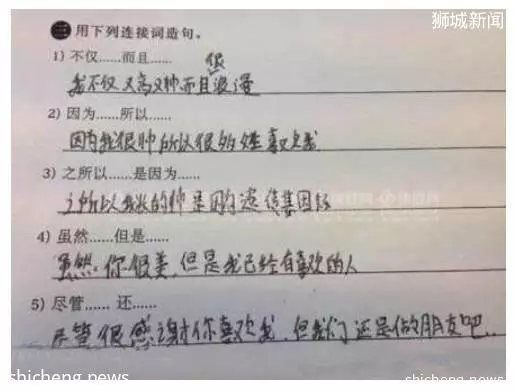 狮城新闻
三 用下列连接词造句。
1) 不仅……而且……
很
我不仅又高又帅而且浪漫
2) 因为……所以……
因为我很帅所以很多姓喜欢我
3) 之所以……是因为……
之所以我长的帅是因为遗传基因好
4) 虽然……但是……
虽然你很美,但是我已经有喜欢的人
5) 尽管…… 还……
尽管很感谢你喜欢我,但我们还是做朋友吧..
shicheng.news
shicheng.news